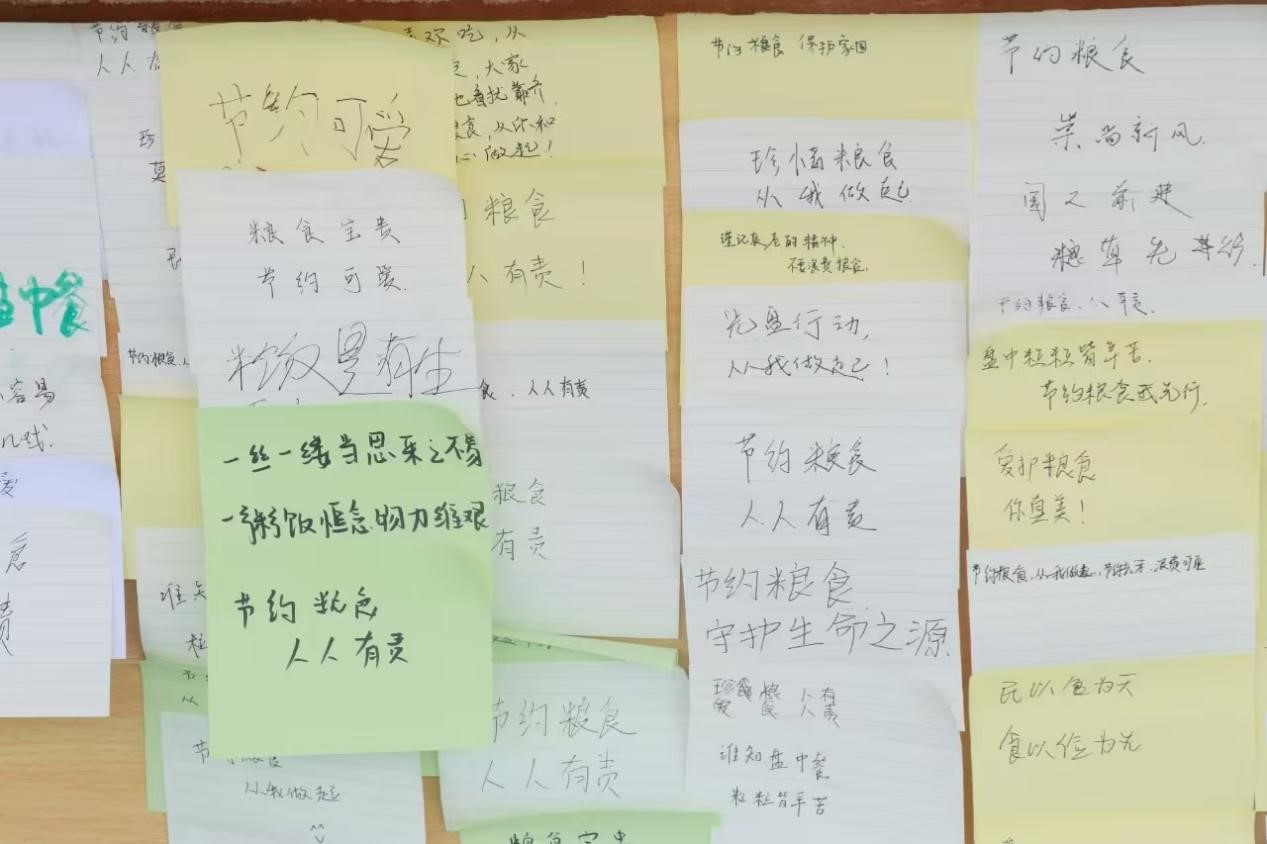 节约粮
人人
珍
莫
盘中餐
容易
节约粮食
谁知
粒
节
从
节 食
从我做起
^^
节约可爱
粮食宝贵
节约可爱
一丝一缕当思来之不易
一粥一饭恒念物力维艰
节约粮食
人人有责
欢吃，从
，大家
食，从你和
做起！
粮食
人有责！
食，人人有责
粮食
有责
节约粮食
人人有责
节约粮食 保护家园
珍惜粮食
从我做起
谨记袁老的精神，
不要浪费粮食。
光盘行动，
从我做起！
节约粮食
人人有责
节约粮食
守护生命之源
珍爱粮食 人人有责
谁知盘中餐
粒粒皆辛苦
节约粮食
崇尚新风
粮草先
节约粮食，人
盘中粒粒皆辛苦，
节约粮食我先行。
爱护粮食
你真美！
节约粮食，从我做起，节约光荣，浪费可耻
民以食为天
食以俭为先